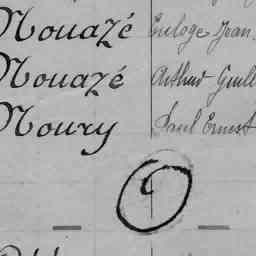 Nouazé Euloge Jean
Nouazé Arthur Guill
Noury Paul Ernest